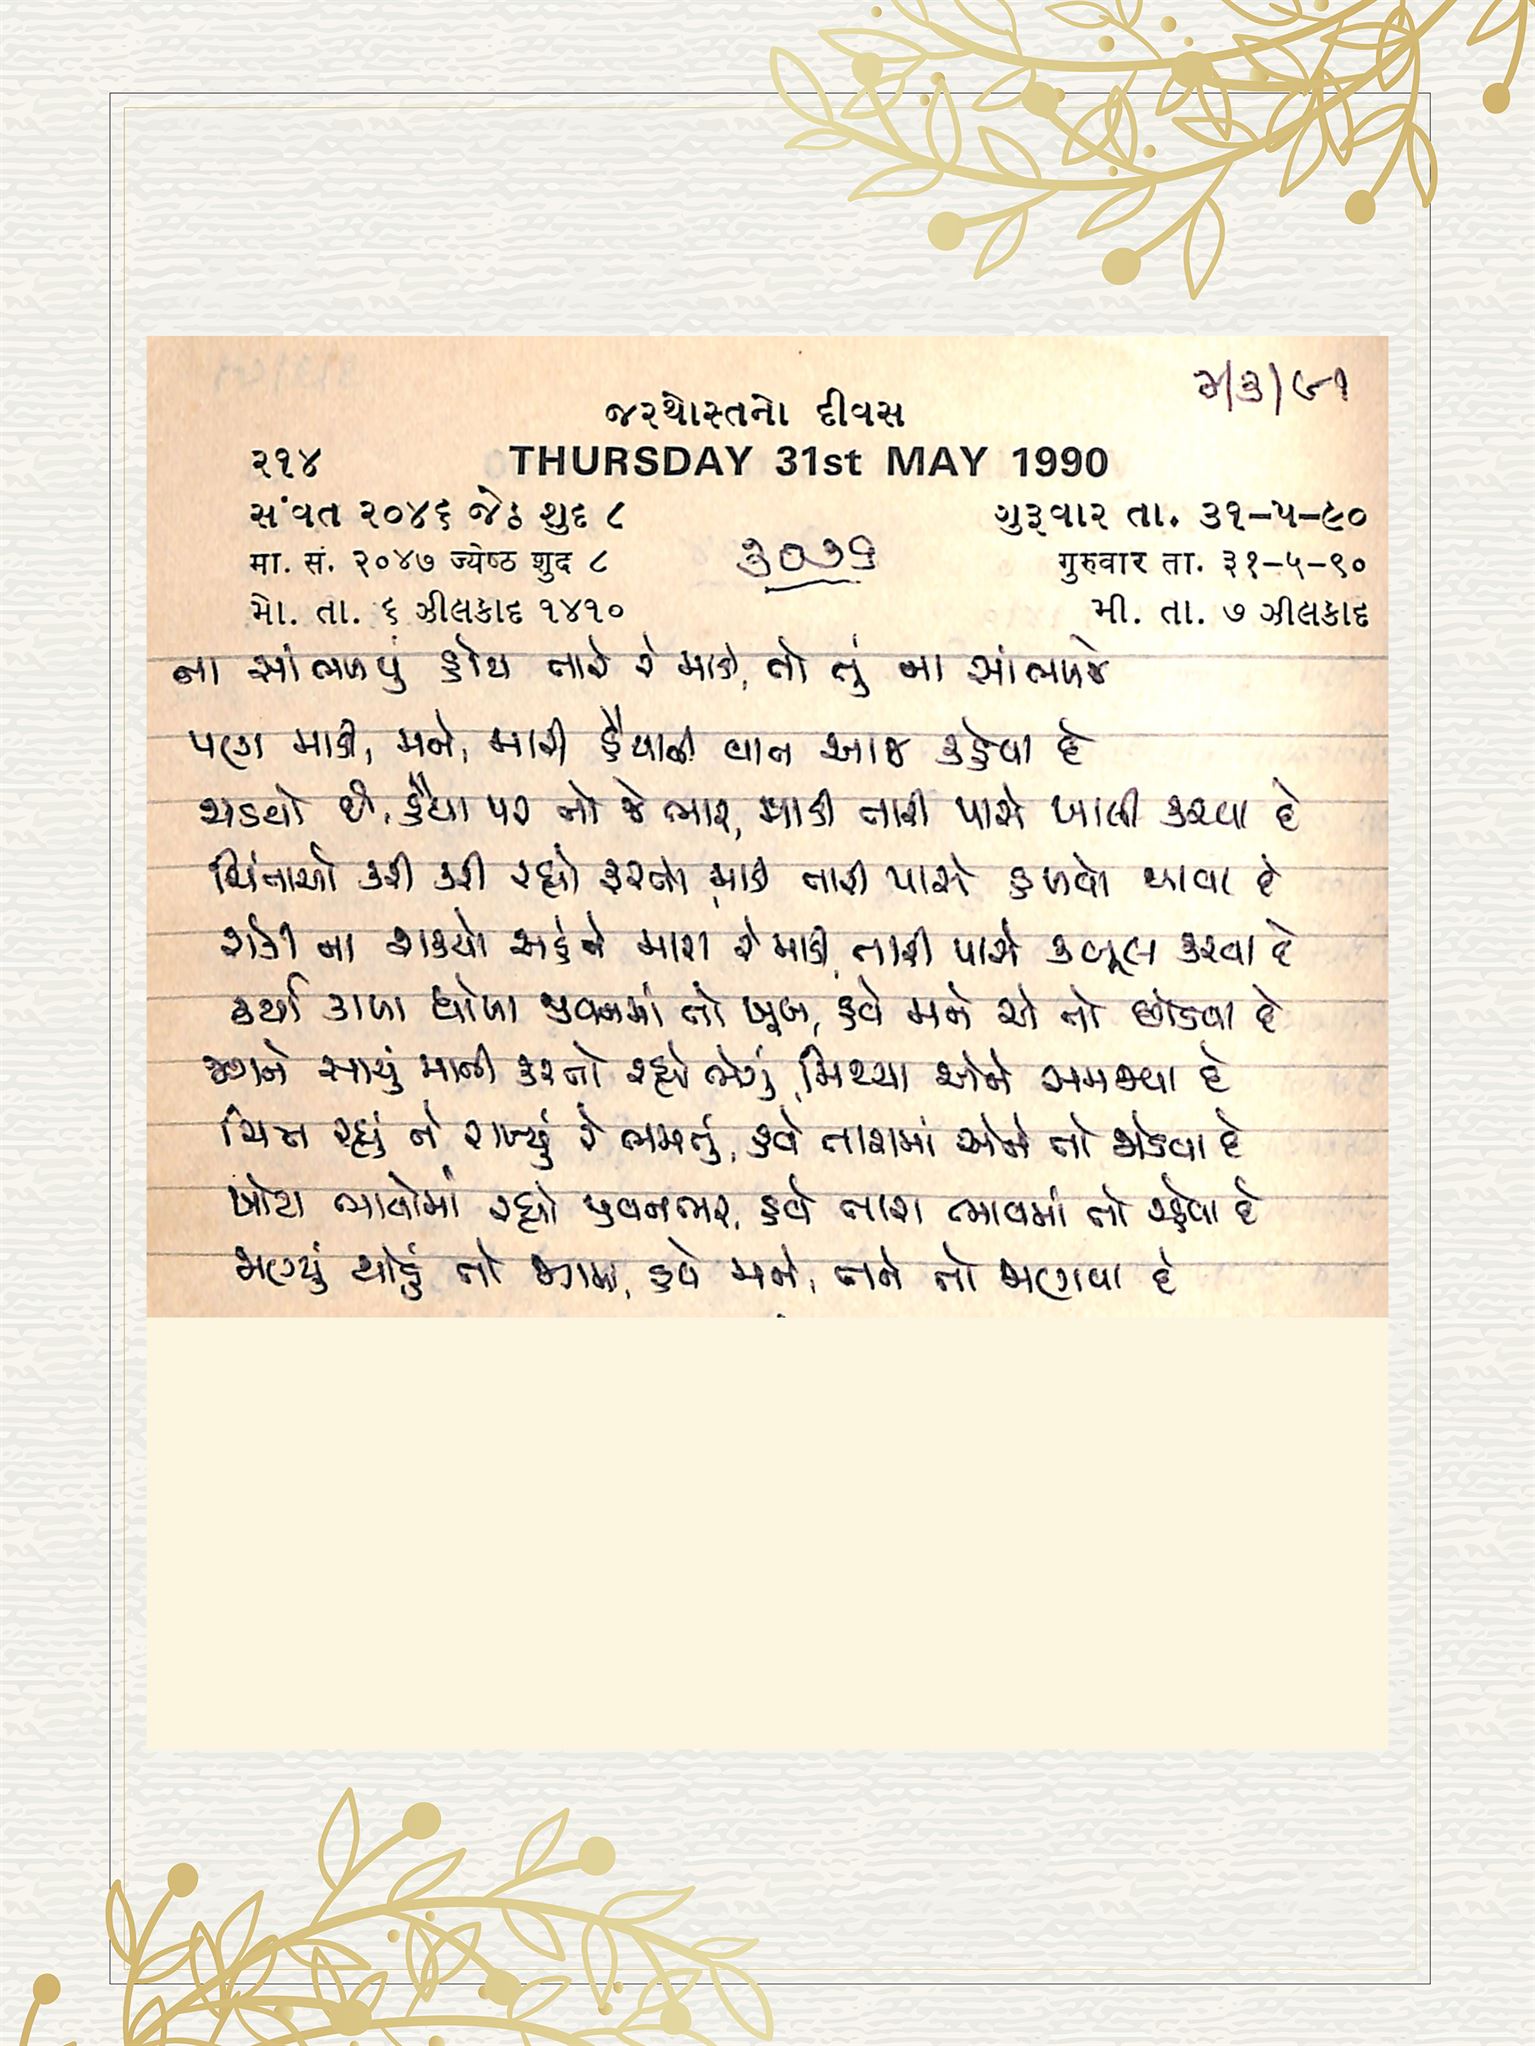 ૨/૩/૯૧
જરથોસ્તનો દીવસ
૨૧૪ THURSDAY 31st MAY 1990
સંવત ૨૦૪૬ જેઠ શુદ ૮ ગુરૂવાર તા. ૩૧-૫-૯૦
मा. सं. २०४७ ज्येष्ठ शुद ८ गुरुवार ता. ३१-५-९०
મો. તા. ૬ ઝીલકાદ ૧૪૧૦ મી. તા. ૭ ઝીલકાદ
ના સાંભળવું હોય તારે રે માડી, તો તું ના સાંભળજે
પણ માડી, મને, મારી હૈયાની વાત આજ કહેવા દે
ચડયો છે, હૈયા પર તો જે ભાર, માડી તારી પાસે ખાલી કરવા દે
ચિંતાઓ કરી કરી રહ્યો ફરતો, માડી તારી પાસે હળવો થાવા દે
રોકી ના શક્યો અહંને મારા રે માડી, તારી પાસે કબૂલ કરવા દે
કર્યા કાળા ધોળા જીવનમાં તો ખૂબ, હવે મને એ તો છોડવા દે
જગને સાચું માની કરતો રહ્યો ભેગું, મિથ્યા એને સમજવા દે
ચિત્ત રહ્યું ને રાખ્યું રે ભમતું, હવે તારામાં એને તો જોડવા દે
ખોટા ભાવોમાં રહ્યો જીવનભર, હવે તારા ભાવમાં તો રહેવા દે
જાણ્યું થોડું તો જગમાં, હવે મને, તને તો જાણવા દે